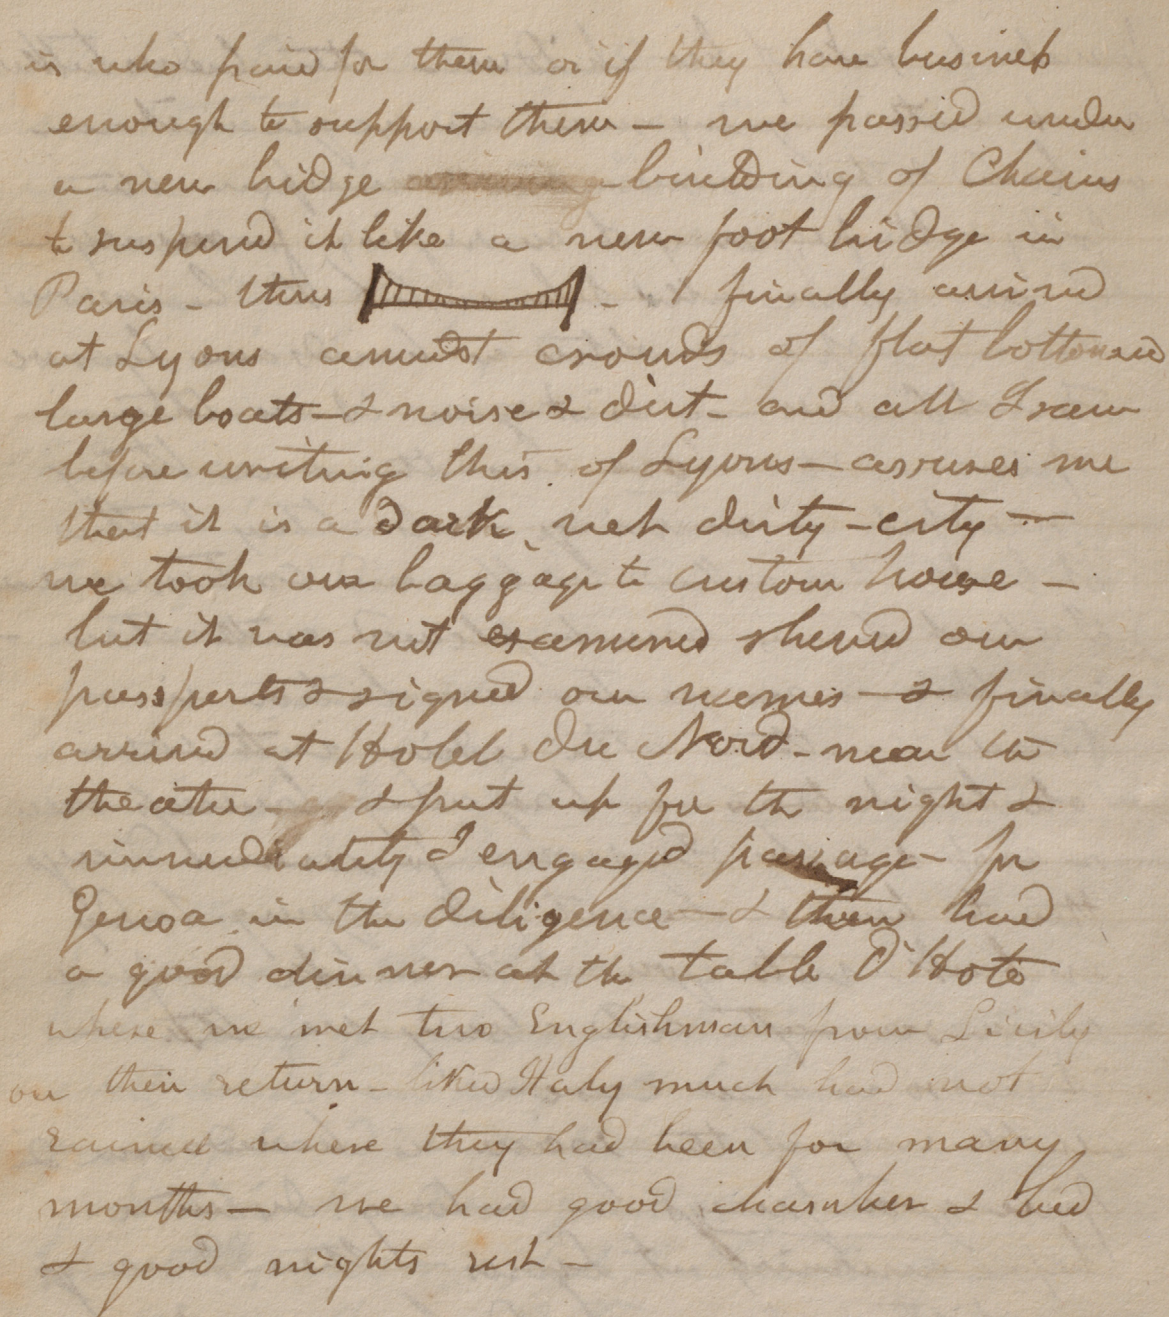 is who paid for them or if they have business
enough to support them - we passed under
a new bridge building of Chains
to suspend it like a new foot bridge in
Paris - thus - finally arrived
at Lyons amidst crouds of flat bottomed
large boats - & noise & dirt - and all I saw
before writing this of Lyons - assures me
that it is a dark, wet dirty - city -
we took our baggage to custom house -
but it was not examined shewed our
passports & signed our names - & finally
arrived at Hotel du Nord - near the
theatre - & put up for the night &
immediately I engaged passage - for
Genoa in the diligence - & then had
a good dinner at the table D'Hote
where we met two Englishman from Sicily
on their return - liked Italy much had not
rained where they had been for many
months - we had good chamber & bed
& good nights rest -